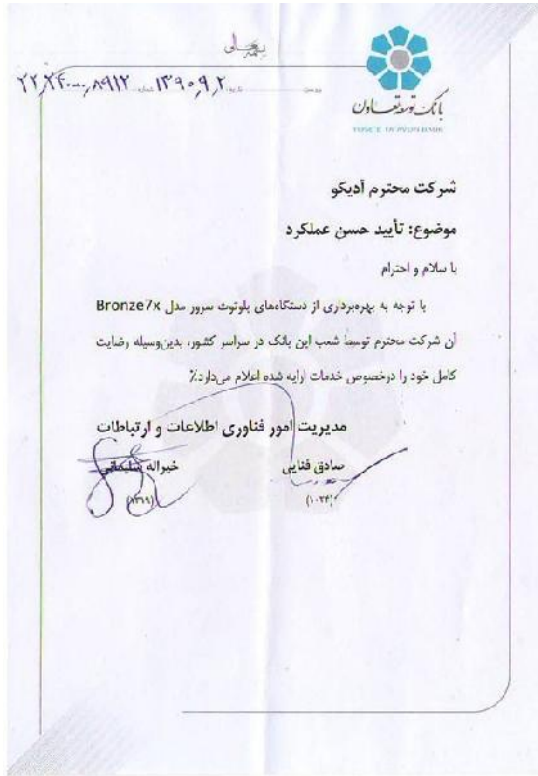 بانک توسعه تعاون
تاریخ: ۱۳۹۰٫۹٫۲ شماره:
شرکت محترم آدیکو
موضوع: تأیید حسن عملکرد
با سلام و احترام
با توجه به بهره‌برداری از دستگاه‌های بلوتوث سرور مدل Bronze7x
آن شرکت محترم توسط شعب این بانک در سراسر کشور، بدین‌وسیله رضایت
کامل خود را درخصوص خدمات ارایه شده اعلام می‌دارد٪
مدیریت امور فناوری اطلاعات و ارتباطات
صادق فنایی خیراله سلیمانی